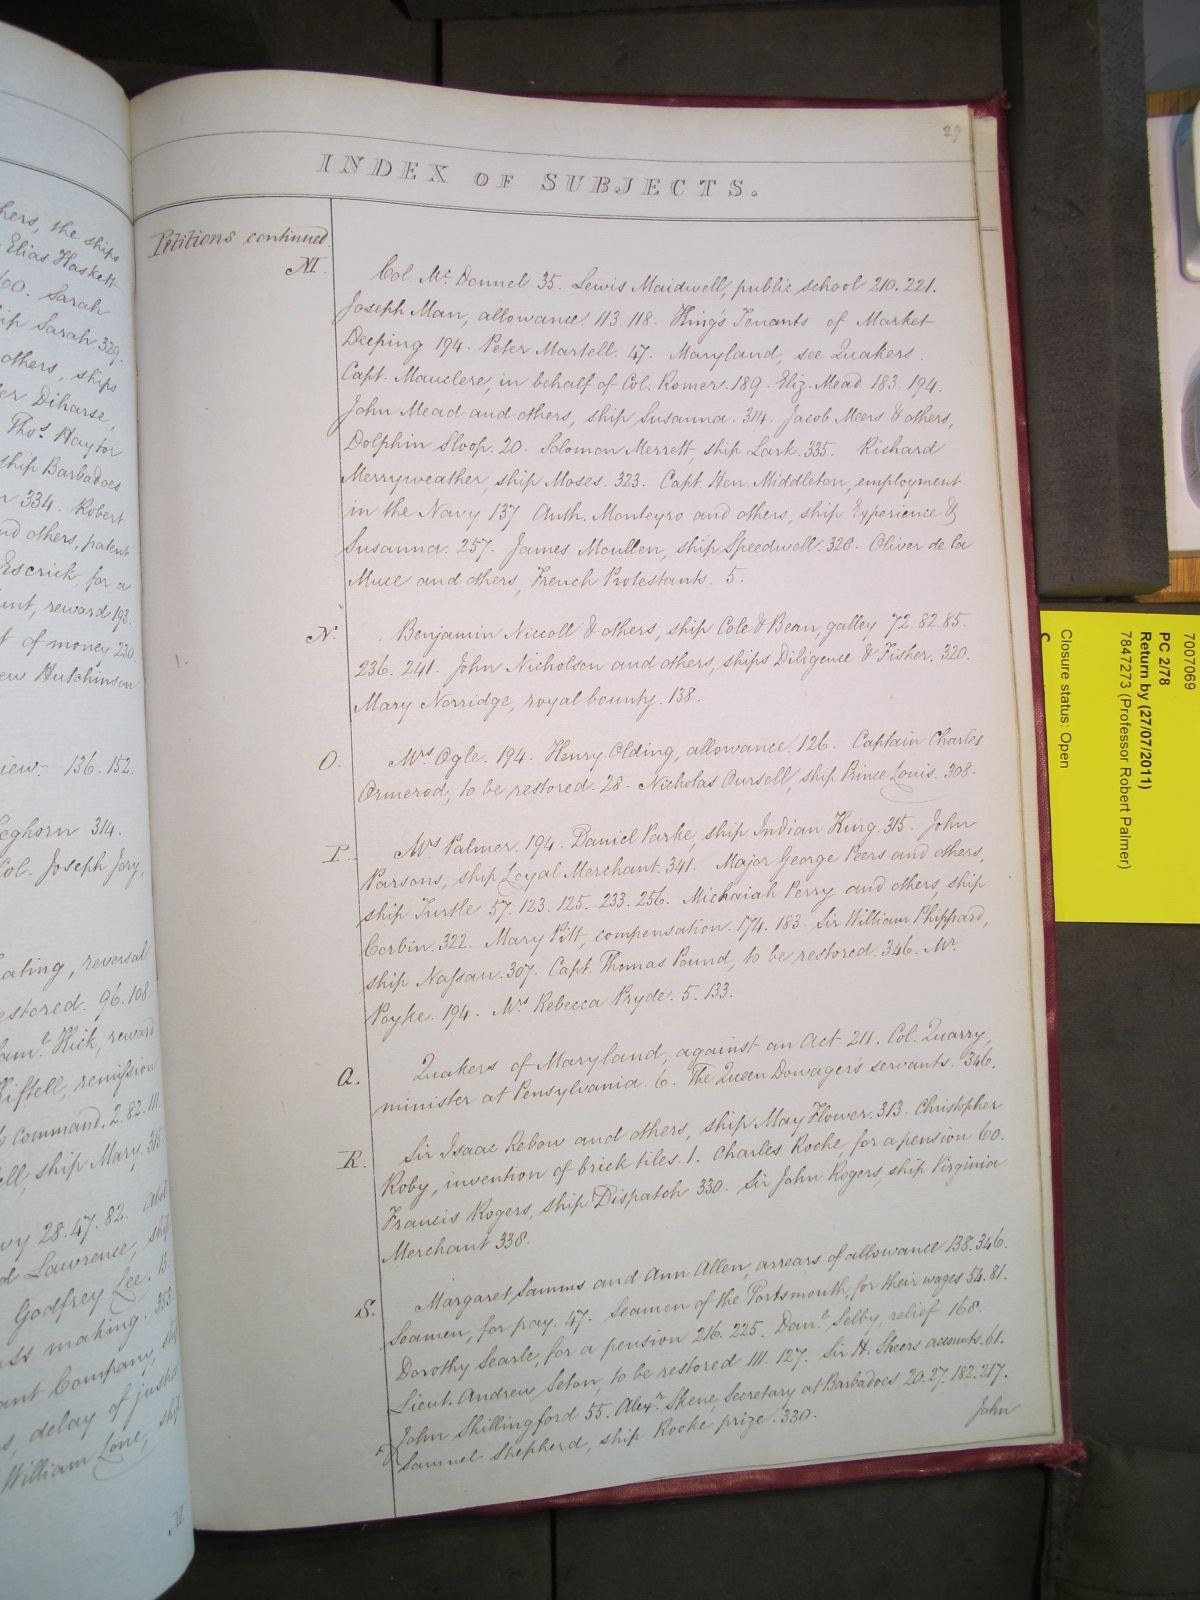 29
INDEX OF SUBJECTS.
Petitions continued.
M.
Col. Mc. Donnel 35. Lewis Maidwell, public school 210. 221.
Joseph Man, allowance 113. 118. King's Tenants of Market
Deeping 194. Peter Martell. 47. Maryland, see Quakers.
Capt. Mauclere, in behalf of Col. Romer. 189. Eliz. Mead 183. 194.
John Mead and others, ship Susanna. 314. Jacob Meers & others,
Dolphin Sloop. 20. Solomon Merrett, ship Lark. 335. Richard
Merryweather, ship Moses. 323. Capt. Hen. Middleton, employment
in the Navy 137 Anth. Monteyro and others, ship Experience &
Susanna. 257. James Moullen, ship Speedwell. 328. Oliver de la
Muce and others, French Protestants. 5.
N.
Benjamin Niccoll & others, ship Cole & Bean, galley 72. 82. 85.
236. 241. John Nicholson and others, ships Diligence & Fisher. 320.
Mary Norridge, royal bounty. 138.
O.
Mrs Ogle. 194. Henry Olding, allowance. 126. Captain Charles
Ormerod, to be restored. 28. Nicholas Oursell, ship Prince Louis. 308.
P.
Mrs Palmer. 194. Daniel Parke, ship Indian King. 315. John
Parsons, ship Loyal Merchant. 341. Major George Peers and others,
ship Turtle 57. 123. 125. 233. 256. Michaiah Perry and others, ship
Corbin. 322. Mary Pitt, compensation. 174. 183. Sir William Phippard,
ship Nassau. 307. Capt. Thomas Pound, to be restored. 346. Mr.
Poyke. 194. Mrs Rebecca Pryde. 5. 133.
Q.
Quakers of Maryland, against an Act 211. Col. Quarry,
minister at Pensylvania. 6. The Queen Dowager's servants. 346.
R.
Sir Isaac Rebow and others, ship May Flower. 313. Christopher
Roby, invention of brick tiles. 1. Charles Roche, for a pension 60.
Francis Rogers, ship Dispatch 330. Sir John Rogers, ship Virginia
Merchant 338.
S.
Margaret Samms and Ann Allen, arrears of allowance 138. 346.
Seamen, for pay. 47. Seamen of the Portsmouth, for their wages 54. 81.
Dorothy Searle, for a pension 216. 225. Danl. Selby, relief 168.
Lieut. Andrew Seton, to be restored 111. 127. Sir H. Sheers accounts. 61.
John Shillingford 55. Alexr. Skene, Secretary at Barbadoes 20. 27. 182. 217.
Samuel Shepherd, ship Rooke prize. 330.
John
hers, the ships
Elias Haskett
Sarah
ip Sarah. 329.
others, ships
er Diharse,
Thos. Haytor
ship Barbadoes
n 334. Robert
nd others, patent
Escrick, for a
unt, reward 193.
t of money 230.
ew Hutchinson
iew. 136. 152.
eghorn 314.
Col. Joseph Jory,
eating, reversal
estored. 96. 108.
Saml. Kick, reward
Kiffell, remission
command. 2. 82. 111.
ell, ship Mary. 315
vy 28. 47. 82.
d Lawrence, ship
Godfrey Lee.
ass making. 303.
ant Company,
s, delay of justice
William Lone, ship
M.
7007069
PC 2/78
Return by (27/07/2011)
7847273 (Professor Robert Palmer)
Closure status: Open
C